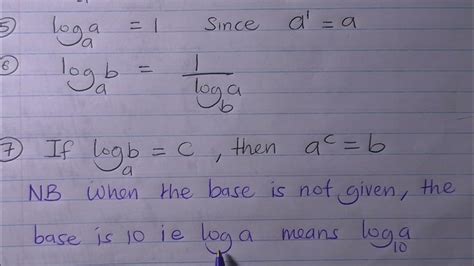 ⑤ logₐa = 1 Since a¹ = a
⑥ logₐb = 1/log_b a
⑦ If logₐb = c, then aᶜ = b
NB When the base is not given, the
base is 10 ie log a means log₁₀a